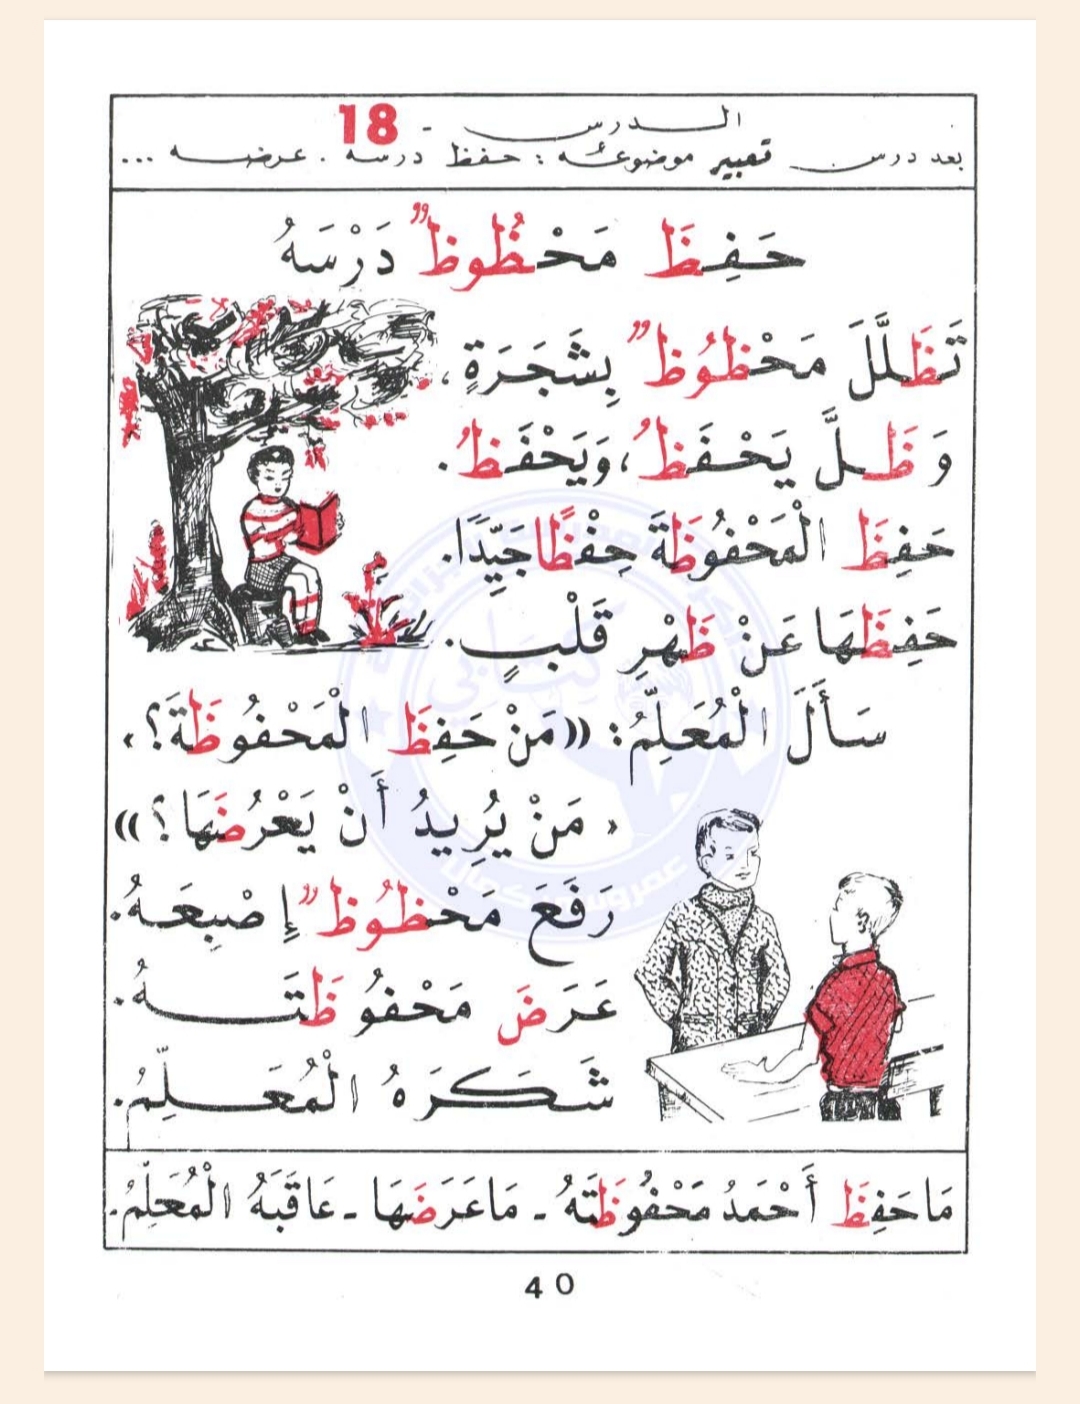 الدرس - 18
بعد درس تعبير موضوعه : حفظ درسه . عرضه ...
حَفِظَ مَحْظُوظٌ دَرْسَهُ
تَظَلَّلَ مَحْظُوظٌ بِشَجَرَةٍ،
وَظَلَّ يَحْفَظُ، وَيَحْفَظُ.
حَفِظَ الْمَحْفُوظَةَ حِفْظًا جَيِّدًا.
حَفِظَهَا عَنْ ظَهْرِ قَلْبٍ.
سَأَلَ الْمُعَلِّمُ: «مَنْ حَفِظَ الْمَحْفُوظَةَ؟،
، مَنْ يُرِيدُ أَنْ يَعْرُضَهَا؟»
رَفَعَ مَحْظُوظٌ إِصْبِعَهُ.
عَرَضَ مَحْفُوظَتَهُ.
شَكَرَهُ الْمُعَلِّمُ.
مَا حَفِظَ أَحْمَدُ مَحْفُوظَتَهُ - مَا عَرَضَهَا - عَاقَبَهُ الْمُعَلِّمُ.
40